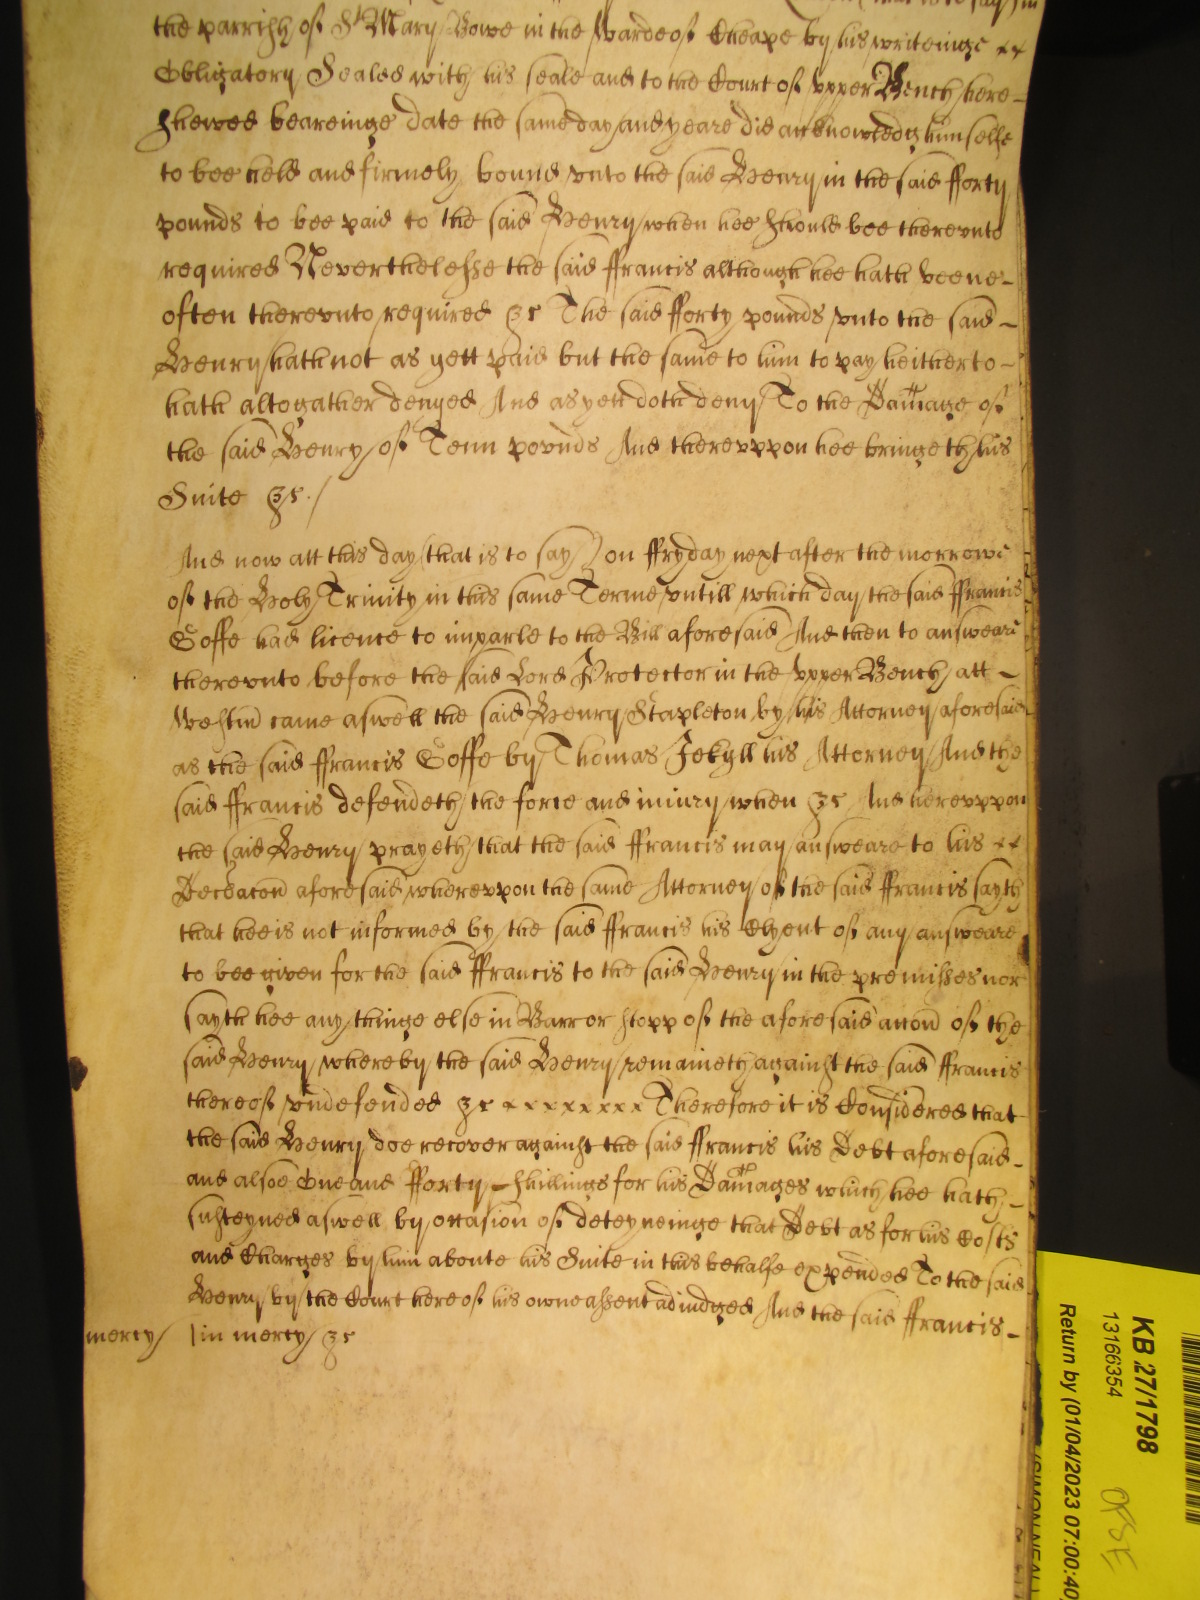 (that is to say) in
the parrish of St Mary Bowe in the Warde of Cheape by his writeinge xx
Obligatory Sealed with his seale and to the Court of vpper Bench here –
shewed beareinge date the same day and yeare did acknowledg himselfe
to bee held and firmely bound vnto the said Henry in the said fforty
pounds to bee paid to the said Henry when hee should bee therevnto
required Neverthelesse the said ffrancis although hee hath beene –
often therevnto required &c The said fforty pounds vnto the said –
Henry hath not as yett paid but the same to him to pay heitherto –
hath altogather denyed And as yett doth deny To the Damage of
the said Henry of Tenn pounds And therevppon hee bringeth his
Suite &c./
And now att this day (that is to say) on ffryday next after the morrowe
of the Holy Trinity in this same Terme vntill which day the said ffrancis
Goffe had licence to imparle to the Bill aforesaid And then to answeare
therevnto before the said Lord Protector in the vpper Bench att –
Westm came aswell the said Henry Stapleton by his Attorney aforesaid
as the said ffrancis Goffe by Thomas Jekyll his Attorney And the
said ffrancis defendeth the force and iniury when &c And herevppon
the said Henry prayeth that the said ffrancis may answeare to his xx
Declacon aforesaid wherevpon the same Attorney of the said ffrancis sayth
that hee is not informed by the said ffrancis his Clyent of any answeare
to bee given for the said ffrancis to the said Henry in the premisses nor
sayth hee any thinge else in Barr or stopp of the aforesaid accon of the
said Henry whereby the said Henry remaineth against the said ffrancis
thereof vndefended &c xxxxxxxx Therefore it is Considered that
the said Henry doe recover against the said ffrancis his Debt aforesaid –
and alsoe One and fforty – shillings for his Damages which hee hath –
susteyned aswell by occasion of deteyneinge that Debt as for his Costs
and Charges by him aboute his Suite in this behalfe expended To the said
Henry by the Court here of his owne assent adiudged And the said ffrancis –
mercy / in mercy &c
KB 27/1798
13166354
Return by (01/04/2023 07:00:40)
(SIMON NEAL)